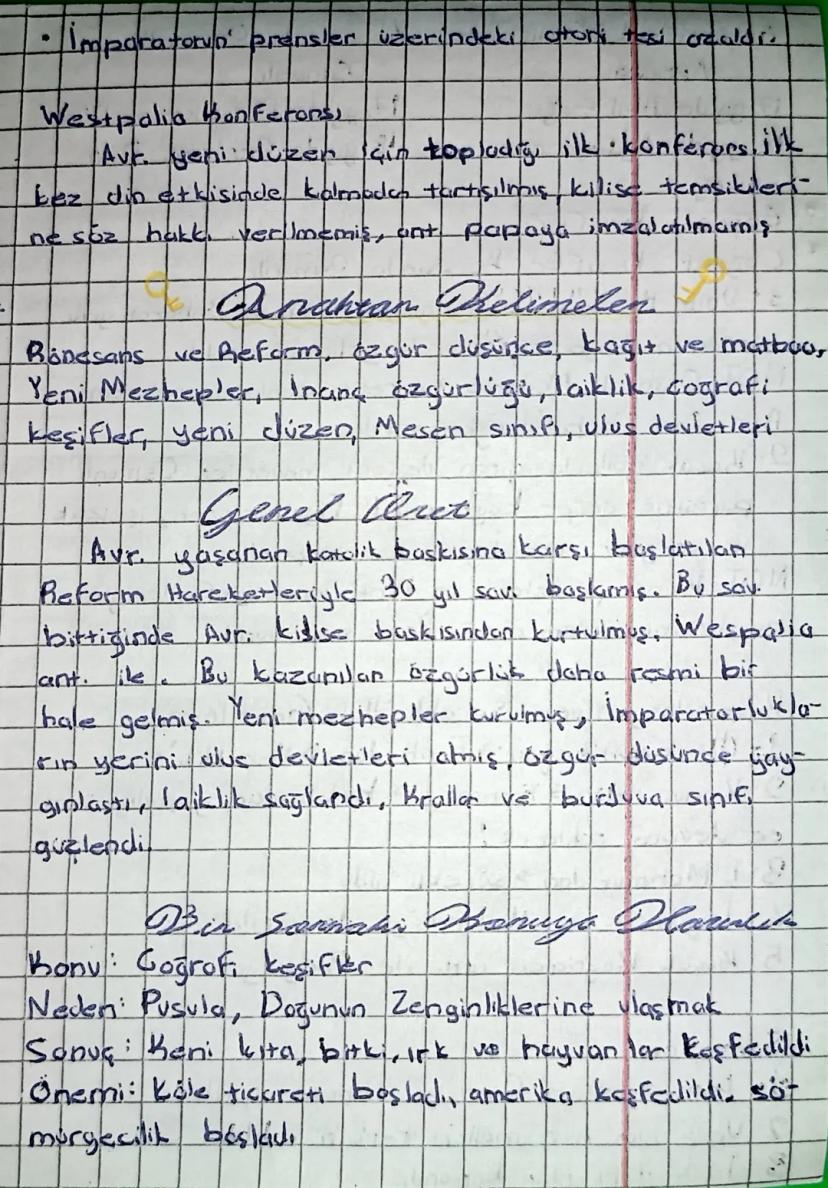 • İmparatorun prensler üzerindeki otoritesi azaldı.
Westpalia Konferansı
Avr. yeni düzen için topladığı ilk konferans, ilk
kez din etkisinde kalmadan tartışılmış, kilise temsilcileri-
ne söz hakkı verilmemiş, ant papaya imzalatılmamış
Anahtar Kelimeler
Rönesans ve Reform, özgür düşünce, kağıt ve matbaa,
Yeni Mezhepler, İnanç özgürlüğü, laiklik, coğrafi
keşifler, yeni düzen, Mesen sınıfı, ulus devletleri
Genel Özet
Avr. yaşanan katolik baskısına karşı başlatılan
Reform Hareketleriyle 30 yıl sav. başlamış. Bu sav.
bittiğinde Avr. kilise baskısından kurtulmuş. Wespalia
ant. ile. Bu kazanılan özgürlük daha resmi bir
hale gelmiş. Yeni mezhepler kurulmuş, İmparatorlukla-
rın yerini ulus devletleri almış, özgür düşünde yay-
gınlaştı, laiklik sağlandı, Krallar ve burjuva sınıfı
güçlendi.
Bir Sonraki Konuya Hazırlık
Konu: Coğrafi keşifler
Neden: Pusula, Doğunun Zenginliklerine ulaşmak
Sonuç: Yeni kıta, bitki, ırk ve hayvanlar keşfedildi
Önemi: Köle ticareti başladı, amerika keşfedildi. sö-
mürgecilik başladı